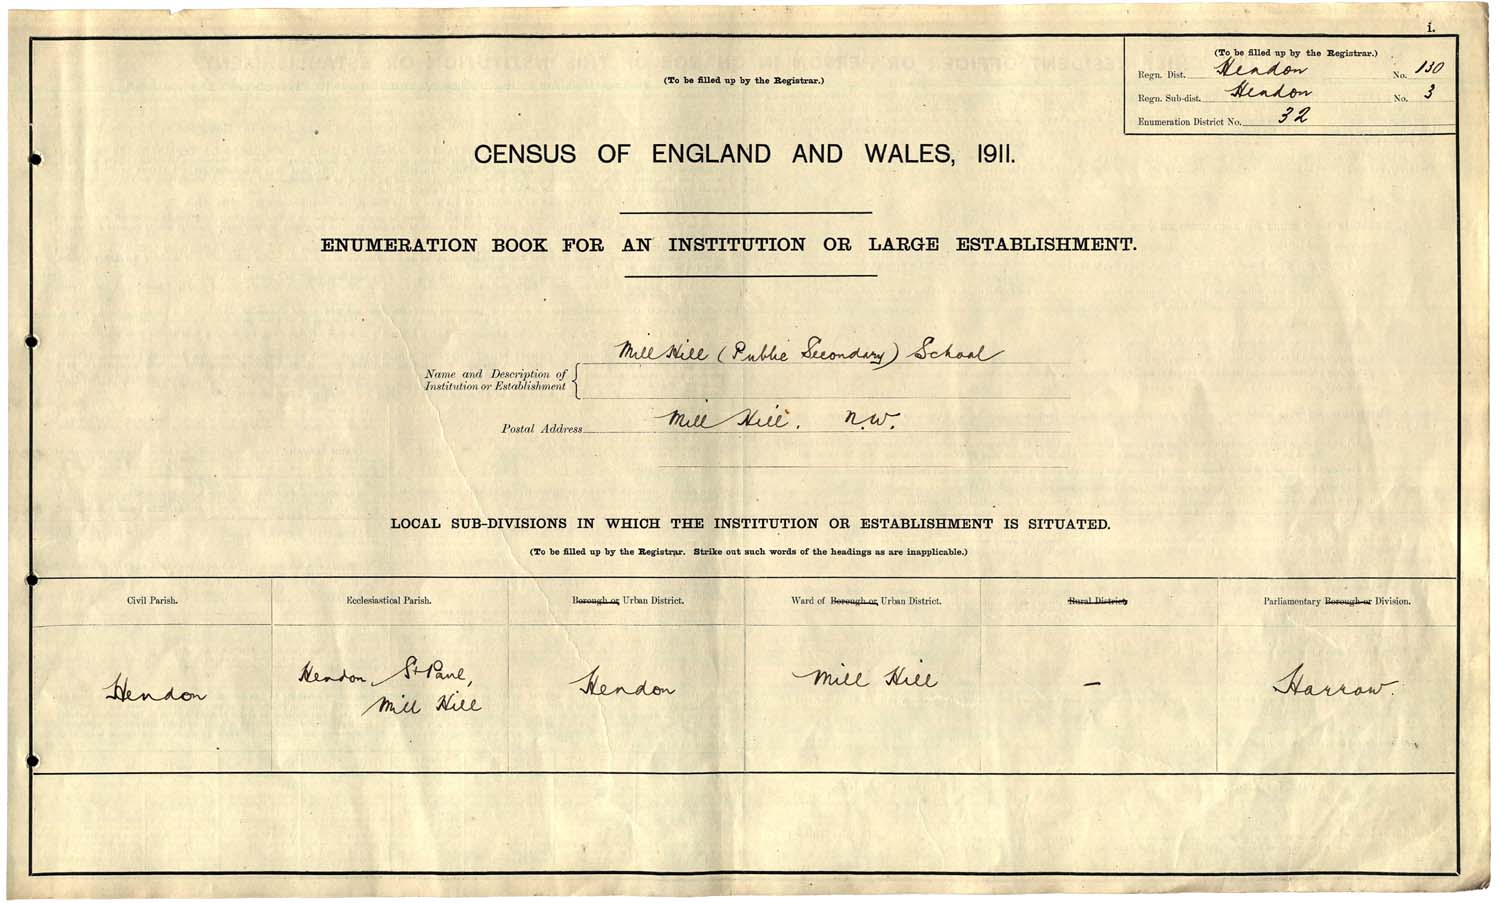 i.
(To be filled up by the Registrar.)
Regn. Dist. Hendon No. 130
Regn. Sub-dist. Hendon No. 3
Enumeration District No. 32
(To be filled up by the Registrar.)
CENSUS OF ENGLAND AND WALES, 1911.
ENUMERATION BOOK FOR AN INSTITUTION OR LARGE ESTABLISHMENT.
Mill Hill (Public Secondary) School
Name and Description of
Institution or Establishment
Postal Address Mill Hill. N.W.
LOCAL SUB-DIVISIONS IN WHICH THE INSTITUTION OR ESTABLISHMENT IS SITUATED.
(To be filled up by the Registrar. Strike out such words of the headings as are inapplicable.)
Civil Parish. Ecclesiastical Parish. Borough or Urban District. Ward of Borough or Urban District. Rural District Parliamentary Borough or Division.
Hendon Hendon, St Paul, Hendon Mill Hill — Harrow.
Mill Hill